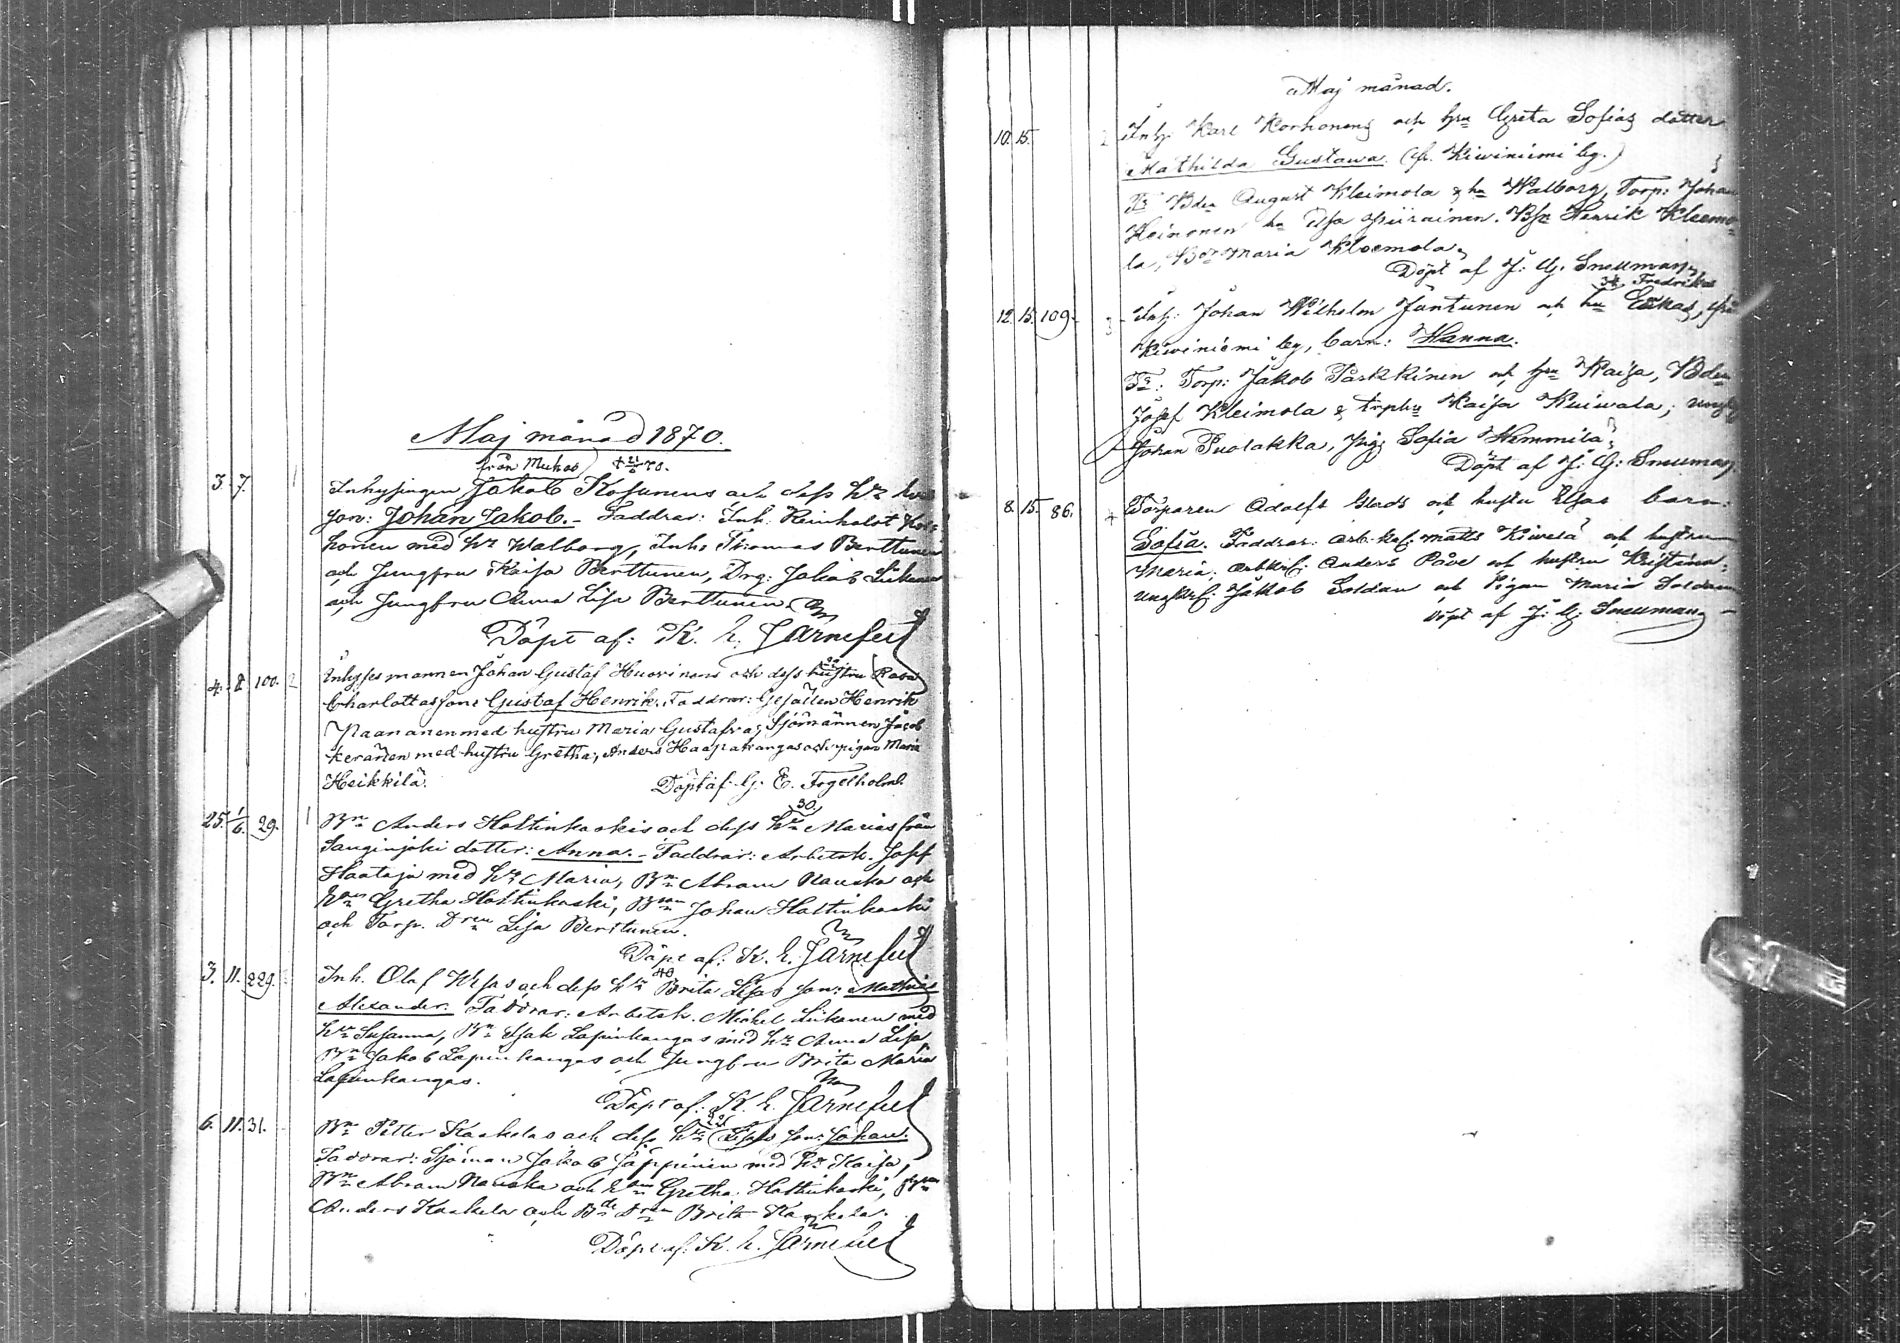 Maj månad 1870.
från Muhos † 21/6 70.
3. 7. 1 Inhysingen Jakob Kosunens och dess hu
son: Johan Jakob. - Faddrar: Inh. Reinholdt Kor-
honen med hu Walborg, Inh. Thomas Berttunen
och Jungfru Kaisa Berttunen, Drg: Jakob Liikanen
och Jungfru Anna Lisa Berttunen.
Döpt af: K. h. Järnefelt
4. 8. 100. 2 Inhysesmannen Johan Gustaf Huovinens och dess hustru Rosa
Charlottas son: Gustaf Henrik. Faddrar: Gesällen Henrik
Paananen med hustru Maria Gustafva; Sjömannen Jacob
Keränen med hustru Gretha; Anders Haapakangas och pigan Maria
Heikkilä. Döpt af G. E. Fogelholm.
30.
25. 1/6. 29. 1 Bn Anders Holtinkoskis och dess hu Marias från
Sanginjoki dotter: Anna. - Faddrar: Arbetsk. Josef
Haataja med hu Maria, Bn Abram Nauska och
Gretha Holtinkoski, Johan Holtinkoski
och Torp. Dren Lisa Berttunen.
Döpt af: K. h. Järnefelt
40
3. 11. 229. Inh. Olaf och dess hu Brita Lisas son: Mathias
Alexander. Faddrar: Arbetsk. Mickel Liikanen med
hu Susanna, Bn Isak Lapinkangas med hu Anna Lisa,
Bn Jakob Lapinkangas och Jungfru Brita Maria
Lapinkangas.
Döpt af: K. h. Järnefelt
6. 11. 31. Bn Petter Koskelas och dess hu Lisas son: Johan.
Faddrar: Sjöman Jakob Jäppinen med hu Kaisa,
Bn Abram Nauska och Gretha Holtinkoski,
Anders Koskela och Brita Koskela.
Döpt af: K. h. Järnefelt
Maj månad.
10. 15. 2 Inh. Karl Korhonens och hru Greta Sofias dotter
Mathilda Gustava. (fr. Kiviniemi by.)
Fr Bden August Kleimola & hu Walborg, Torp: Johan
Heinonen hu Elsa Piirainen. Henrik Kleemo-
la, Maria Kleemola
Döpt af J. G. Snellman
Fredrikas
12. 15. 109. 3 Inh: Johan Wilhelm Juntunen och hu, från
Kiviniemi by, barn: Hanna.
Fr: Torp: Jakob Parkkinen och hru Kaisa, Bden
Josef Kleimola & Kaisa Kuivala;
Johan Puolakka, Sofia Hemmilä
Döpt af J. G. Snellman
8. 15. 86. 4 Torparen Adolf och hustru Elsas barn:
Sofia. Faddrar: Arb.kar Matts och hustrun
Maria; Anders Påve och hustru Kristina;
Jakob Soldan och Pigan Maria Soldan
Döpt af J. G. Snellman